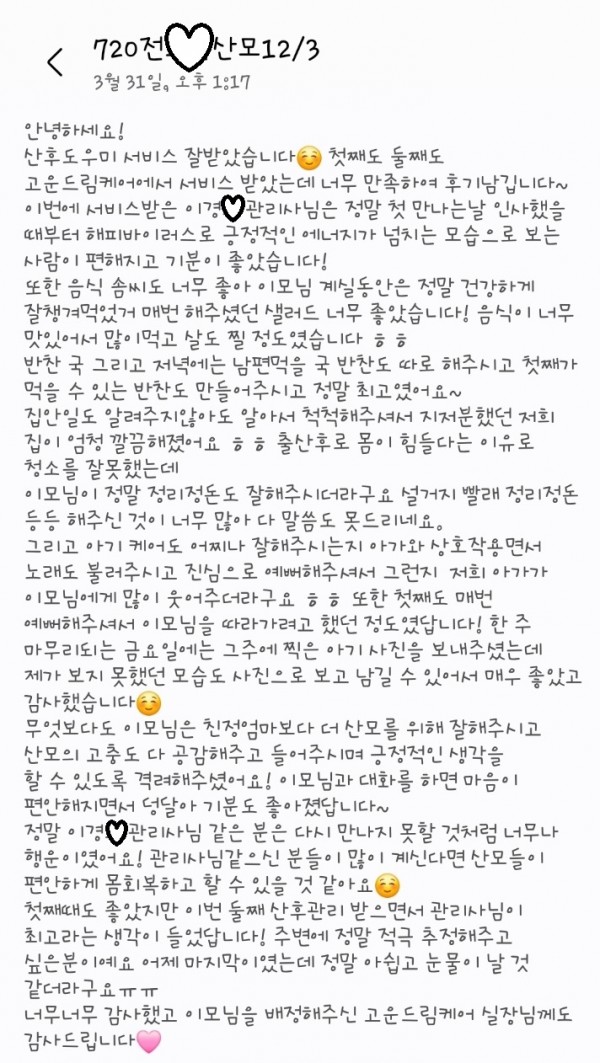 720전 산모12/3
3월 31일, 오후 1:17
안녕하세요!
산후도우미 서비스 잘받았습니다☺️ 첫째도 둘째도
고운드림케어에서 서비스 받았는데 너무 만족하여 후기남깁니다~
이번에 서비스받은 이경♡관리사님은 정말 첫 만나는날 인사했을
때부터 해피바이러스로 긍정적인 에너지가 넘치는 모습으로 보는
사람이 편해지고 기분이 좋았습니다!
또한 음식 솜씨도 너무 좋아 이모님 계실동안은 정말 건강하게
잘챙겨먹었거 매번 해주셨던 샐러드 너무 좋았습니다! 음식이 너무
맛있어서 많이먹고 살도 찔 정도였습니다 ㅎㅎ
반찬 국 그리고 저녁에는 남편먹을 국 반찬도 따로 해주시고 첫째가
먹을 수 있는 반찬도 만들어주시고 정말 최고였어요~
집안일도 알려주지않아도 알아서 척척해주셔서 지저분했던 저희
집이 엄청 깔끔해졌어요 ㅎㅎ 출산후로 몸이 힘들다는 이유로
청소를 잘못했는데
이모님이 정말 정리정돈도 잘해주시더라구요 설거지 빨래 정리정돈
등등 해주신 것이 너무 많아 다 말씀도 못드리네요.
그리고 아기 케어도 어찌나 잘해주시는지 아가와 상호작용면서
노래도 불러주시고 진심으로 예뻐해주셔서 그런지 저희 아가가
이모님에게 많이 웃어주더라구요 ㅎㅎ 또한 첫째도 매번
예뻐해주셔서 이모님을 따라가려고 했던 정도였답니다! 한 주
마무리되는 금요일에는 그주에 찍은 아기 사진을 보내주셨는데
제가 보지 못했던 모습도 사진으로 보고 남길 수 있어서 매우 좋았고
감사했습니다☺️
무엇보다도 이모님은 친정엄마보다 더 산모를 위해 잘해주시고
산모의 고충도 다 공감해주고 들어주시며 긍정적인 생각을
할 수 있도록 격려해주셨어요! 이모님과 대화를 하면 마음이
편안해지면서 덩달아 기분도 좋아졌답니다~
정말 이경♡관리사님 같은 분은 다시 만나지 못할 것처럼 너무나
행운이였어요! 관리사님같으신 분들이 많이 계신다면 산모들이
편안하게 몸회복하고 할 수 있을 것 같아요☺️
첫째때도 좋았지만 이번 둘째 산후관리 받으면서 관리사님이
최고라는 생각이 들었답니다! 주변에 정말 적극 추정해주고
싶은분이예요 어제 마지막이였는데 정말 아쉽고 눈물이 날 것
같더라구요ㅠㅠ
너무너무 감사했고 이모님을 배정해주신 고운드림케어 실장님께도
감사드립니다🩷